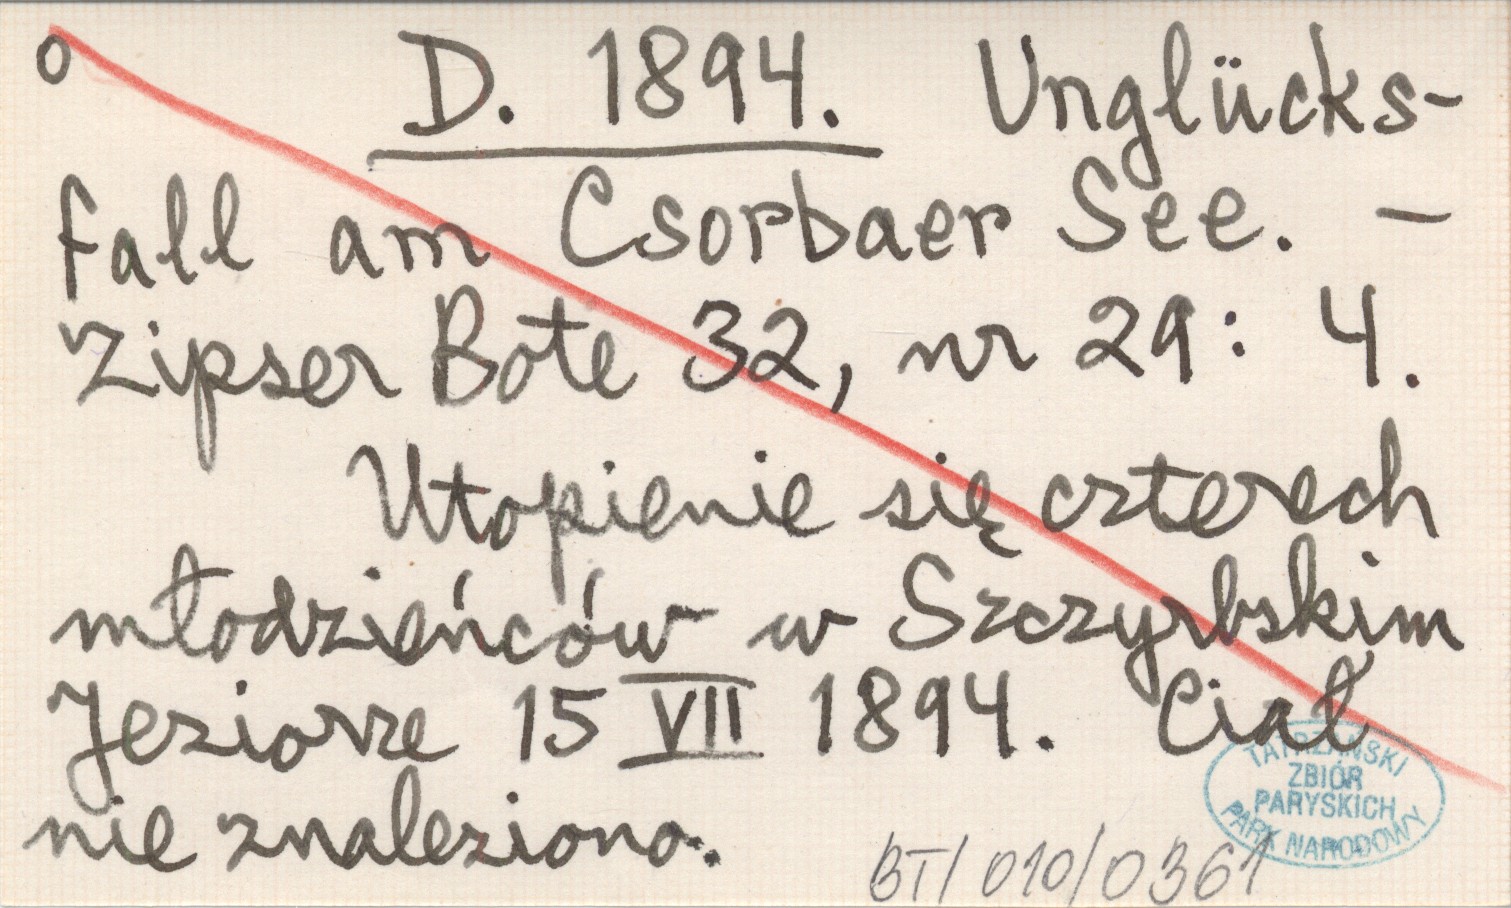 o D. 1894. Unglücks-
fall am Csorbaer See. —
Zipser Bote 32, nr 29: 4.
Utopienie się czterech
młodzieńców w Szczyrbskim
Jeziorze 15 VII 1894. Ciał
nie znaleziono.
TATRZAŃSKI
ZBIÓR
PARYSKICH
PARK NARODOWY
BT/010/0361